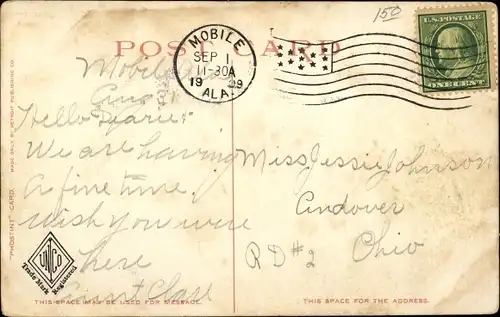 150
POST CARD
U.S. POSTAGE
ONE CENT
MOBILE
SEP 1
11-30A
1909
ALA.
Mobile
Hello
We are having
A fine time.
Wish you were
here
Aunt
Miss Jessie Johnson
Andover
RD #2 Ohio
"PHOSTINT" CARD.
MADE ONLY BY DETROIT PUBLISHING CO.
UNCO
Trade Mark Registered
THIS SPACE MAY BE USED FOR MESSAGE.
THIS SPACE FOR THE ADDRESS.